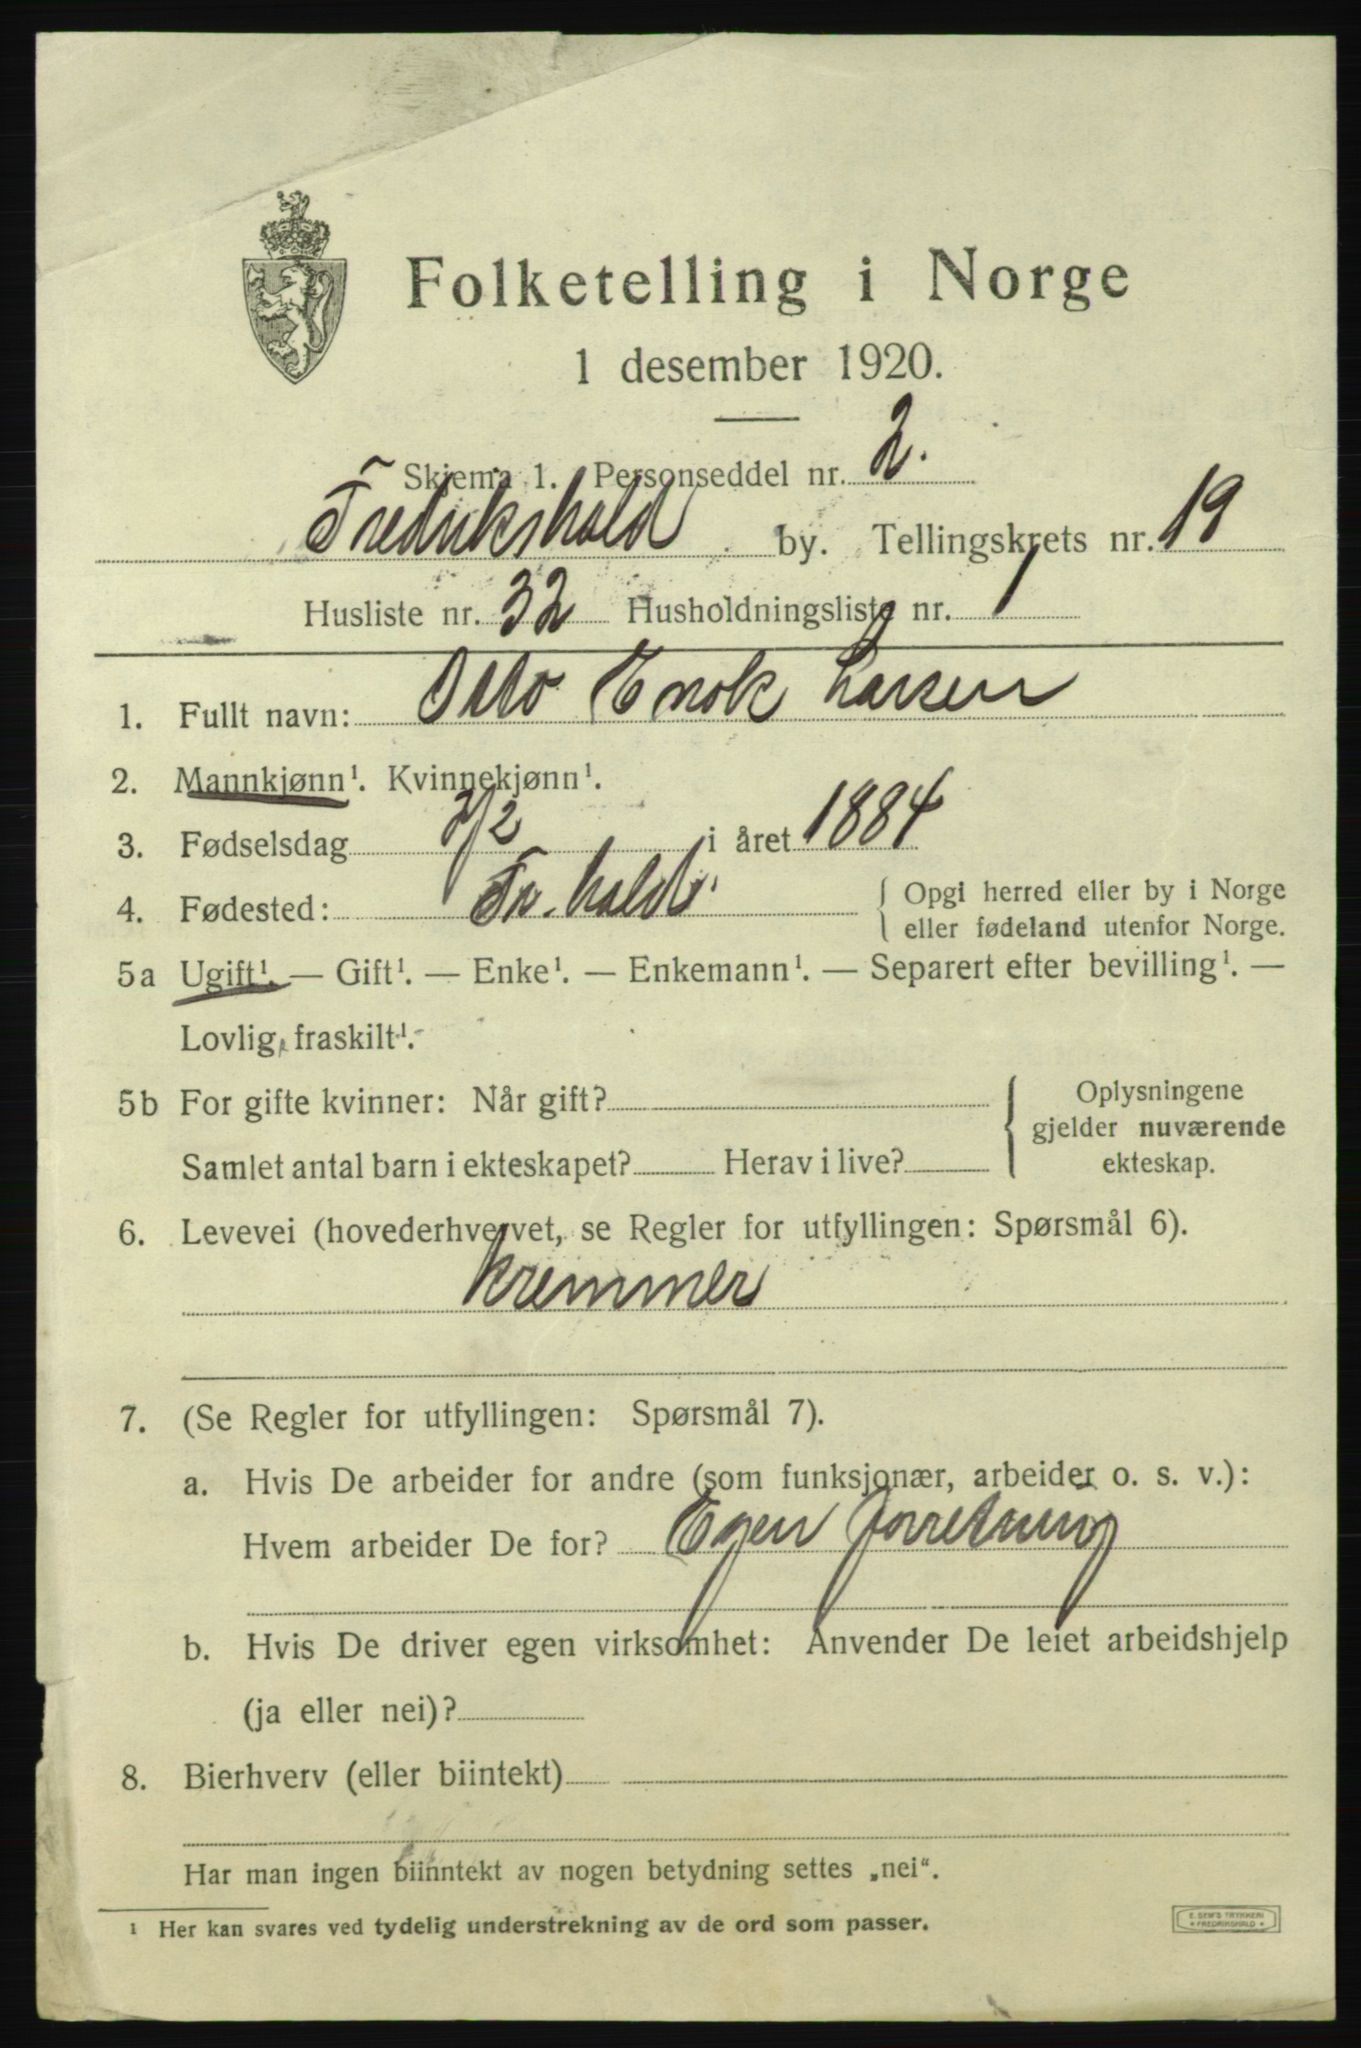 Folketelling i Norge
1 desember 1920.
Skjema 1. Personseddel nr. 2.
Fredrikshald by. Tellingskrets nr. 19
Husliste nr. 32 Husholdningsliste nr. 1
1. Fullt navn: Otto Enok Larsen
2. Mannkjønn¹. Kvinnekjønn¹.
3. Fødselsdag 7/2 i året 1884
4. Fødested: Fr. hald. { Opgi herred eller by i Norge
eller fødeland utenfor Norge.
5a Ugift¹. — Gift¹. — Enke¹. — Enkemann¹. — Separert efter bevilling¹. —
Lovlig fraskilt¹.
5b For gifte kvinner: Når gift? { Oplysningene
gjelder nuværende
Samlet antal barn i ekteskapet? Herav i live? ekteskap.
6. Levevei (hovederhvervet, se Regler for utfyllingen: Spørsmål 6).
Kremmer
7. (Se Regler for utfyllingen: Spørsmål 7).
a. Hvis De arbeider for andre (som funksjonær, arbeider o. s. v.):
Hvem arbeider De for? Egen forretning
b. Hvis De driver egen virksomhet: Anvender De leiet arbeidshjelp
(ja eller nei)?
8. Bierhverv (eller biintekt)
Har man ingen biinntekt av nogen betydning settes „nei“.
¹ Her kan svares ved tydelig understrekning av de ord som passer.
E. SEM'S TRYKKERI
* FREDRIKSHALD *